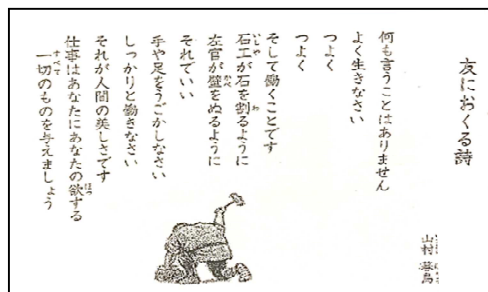 友におくる詩
山村 暮鳥
何も言うことはありません
よく生きなさい
つよく
つよく
そして働くことです
石工が石を割るように
左官が壁をぬるように
それでいい
手や足をうごかしなさい
しっかりと働きなさい
それが人間の美しさです
仕事はあなたにあなたの欲する
一切のものを与えましょう